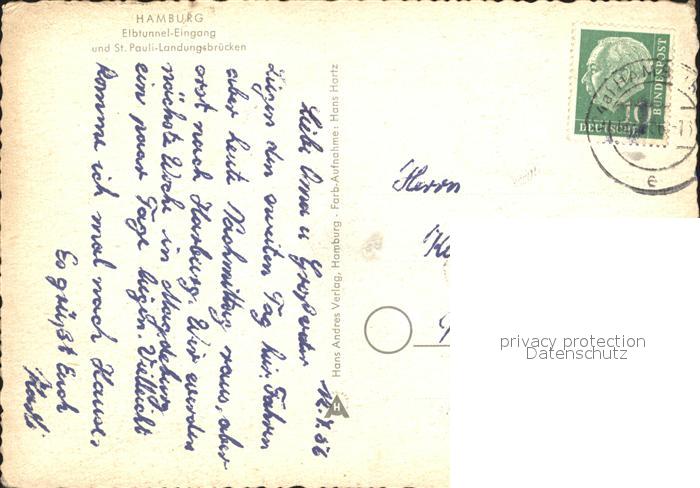 HAMBURG
Elbtunnel-Eingang
und St. Pauli-Landungsbrücken
Liebe Oma u Großvater 12.7.56
Liegen den zweiten Tag hier. Fahren
aber heute Nachmittag raus, aber
erst nach Harburg. Wir werden
nächste Woche in Magdeburg
ein paar Tage liegen. Vielleicht
komme ich mal nach Hause.
Es grüßt Euch
Hans Andres Verlag, Hamburg · Farb-Aufnahme: Hans Hartz
HA
Herrn
10
DEUTSCHE
BUNDESPOST
HAM
e
privacy protection
Datenschutz